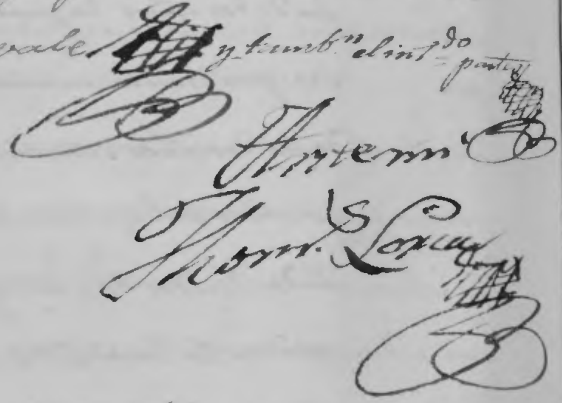 vale y tambn el intdo partes
Ante mi
Thoms